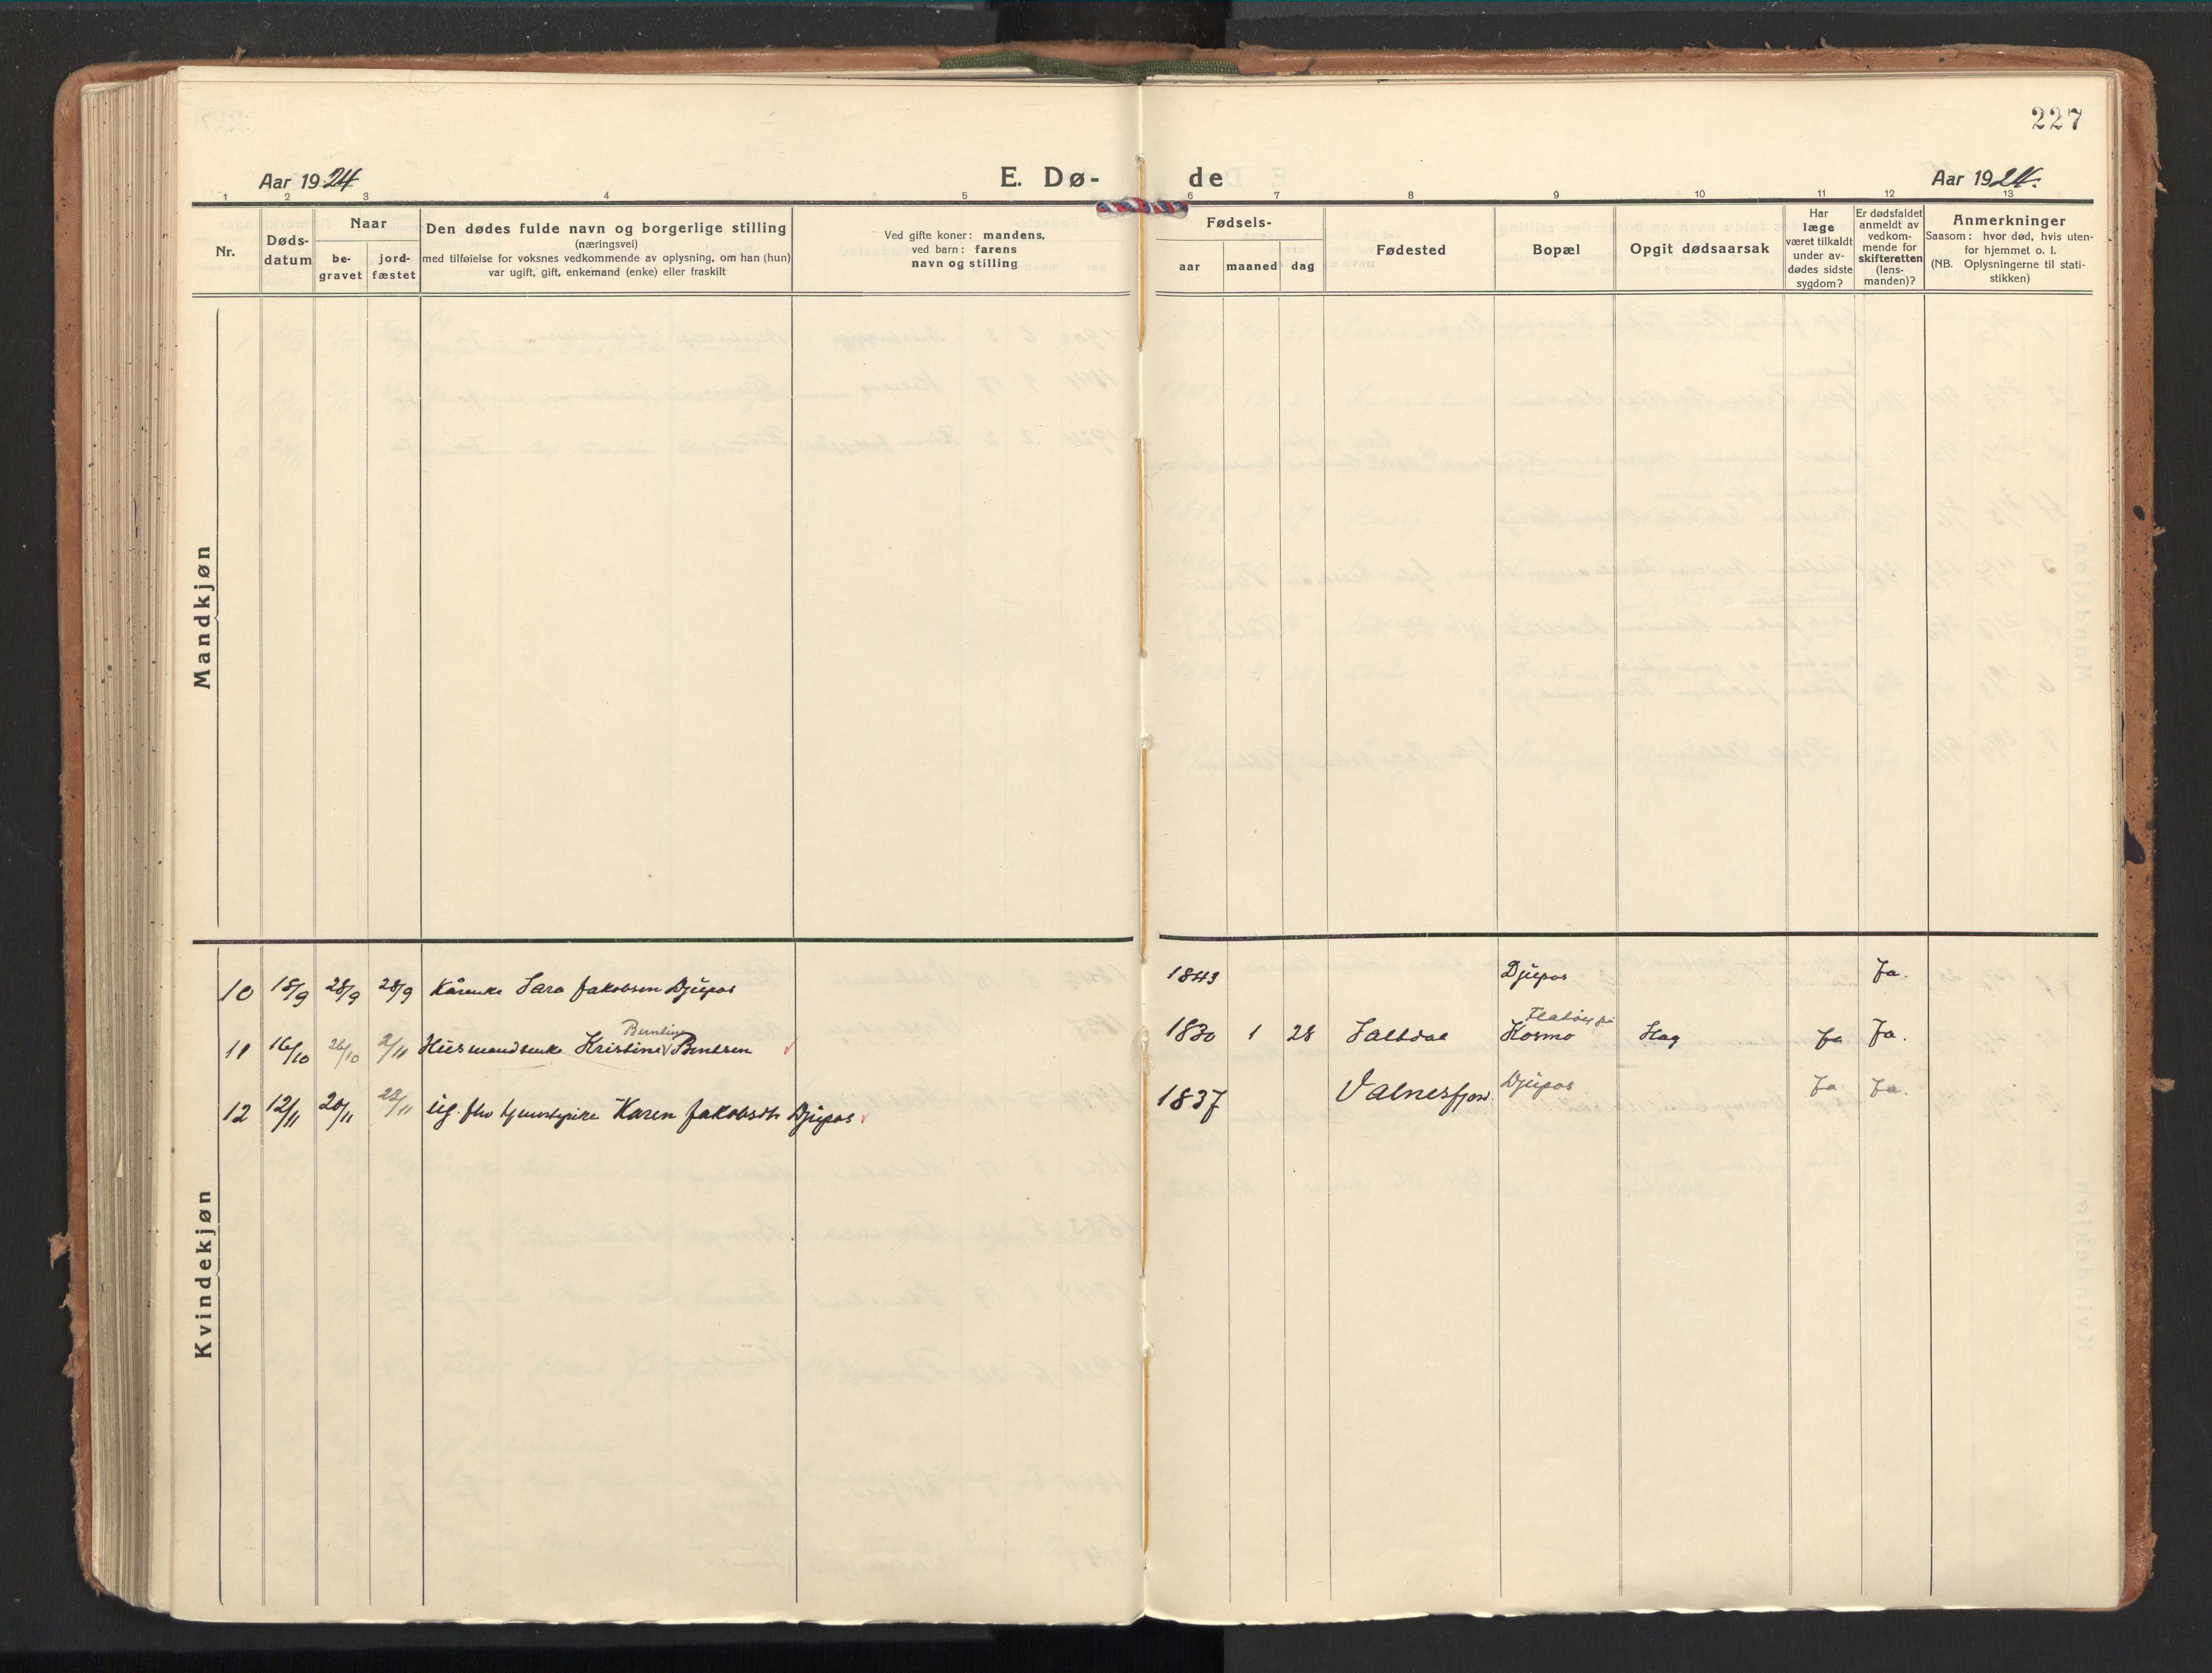 227
Aar 1924
E. Dø-
de
Aar 1924.
1 2 3 4 5 6 7 8 9 10 11 12 13
Nr.
Døds-
datum
Naar
be-
gravet
jord-
fæstet
Den dødes fulde navn og borgerlige stilling
(næringsvei)
med tilføielse for voksnes vedkommende av oplysning, om han (hun)
var ugift, gift, enkemand (enke) eller fraskilt
Ved gifte koner: mandens,
ved barn: farens
navn og stilling
Fødsels-
aar
maaned
dag
Fødested
Bopæl
Opgit dødsaarsak
Har
læge
været tilkaldt
under av-
dødes sidste
sygdom?
Er dødsfaldet
anmeldt av
vedkom-
mende for
skifteretten
(lens-
manden)?
Anmerkninger
Saasom: hvor død, hvis uten-
for hjemmet o. l.
(NB. Oplysningerne til stati-
stikken)
Mandkjøn
Kvindekjøn
10 18/9 28/9 28/9 Kårenke Sara Jakobsen Djupos 1843 Djupos Ja.
Berntine
11 16/10 26/10 2/11 Husmandsenke Kristine Bentsen 1830 1 28 Saltdal Kosmo Slag Ja Ja.
12 12/11 20/11 22/11 ug. fhv tjenestepike Karen Jakobsdtr Djupos 1837 Valnesfjord Djupos Ja Ja.